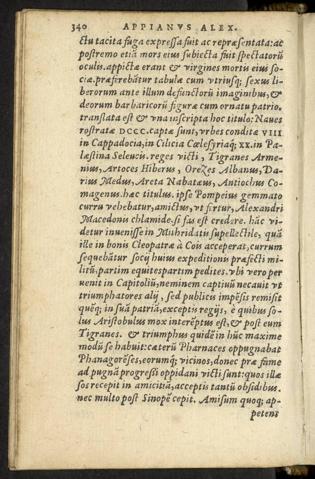 340 APPIANVS ALEX.
ctu tacita fuga expressa fuit ac repræsentata: ac
postremo etiã mors eius subiecta fuit spectatorũ
oculis. appictæ erant & virgines mortis eius so-
ciæ. præferebãtur tabulæ cum vtriusq; sexus li-
berorum ante illum defunctorũ imaginibus, &
deorum barbaricorũ figuræ cum ornatu patrio.
translata est & vna inscripta hoc titulo: Naues
rostratæ DCCC. captæ sunt, vrbes conditæ VIII
in Cappadocia, in Cilicia Cœlesyriaq; XX. in Pa-
læstina Seleucis. reges victi, Tigranes Arme-
nius, Artoces Hiberus, Orezes Albanus, Da-
rius Medus, Areta Nabatæus, Antiochus Co-
magenus. hæc titulus. ipse Pompeius gemmato
curru vehebatur, amictus, vt fertur, Alexandri
Macedonis chlamide. si fas est credere. hãc vi-
detur inuenisse in Mithridatis supellectile, quã
ille in bonis Cleopatræ à Cois acceperat. currum
sequebãtur socij huius expeditionis præfecti mi-
litũ. partim equites partim pedites. vbi vero per
uenit in Capitoliũ, neminem captiuũ necauit vt
triumphatores alij, sed publicis impẽsis remisit
quẽq; in suã patriã, exceptis regijs, è quibus so-
lus Aristobulus mox interẽptus est, & post eum
Tigranes. & triumphus quidẽ in hũc maxime
modũ se habuit: cæterũ Pharnaces oppugnabat
Phanagorẽses, eorumq; vicinos, donec præ fame
ad pugnã progressi oppidani victi sunt: quos illæ
sos recepit in amicitiã, acceptis tantũ obsidibus.
nec multo post Sinopẽ cepit. Amisum quoq; ap-
petens